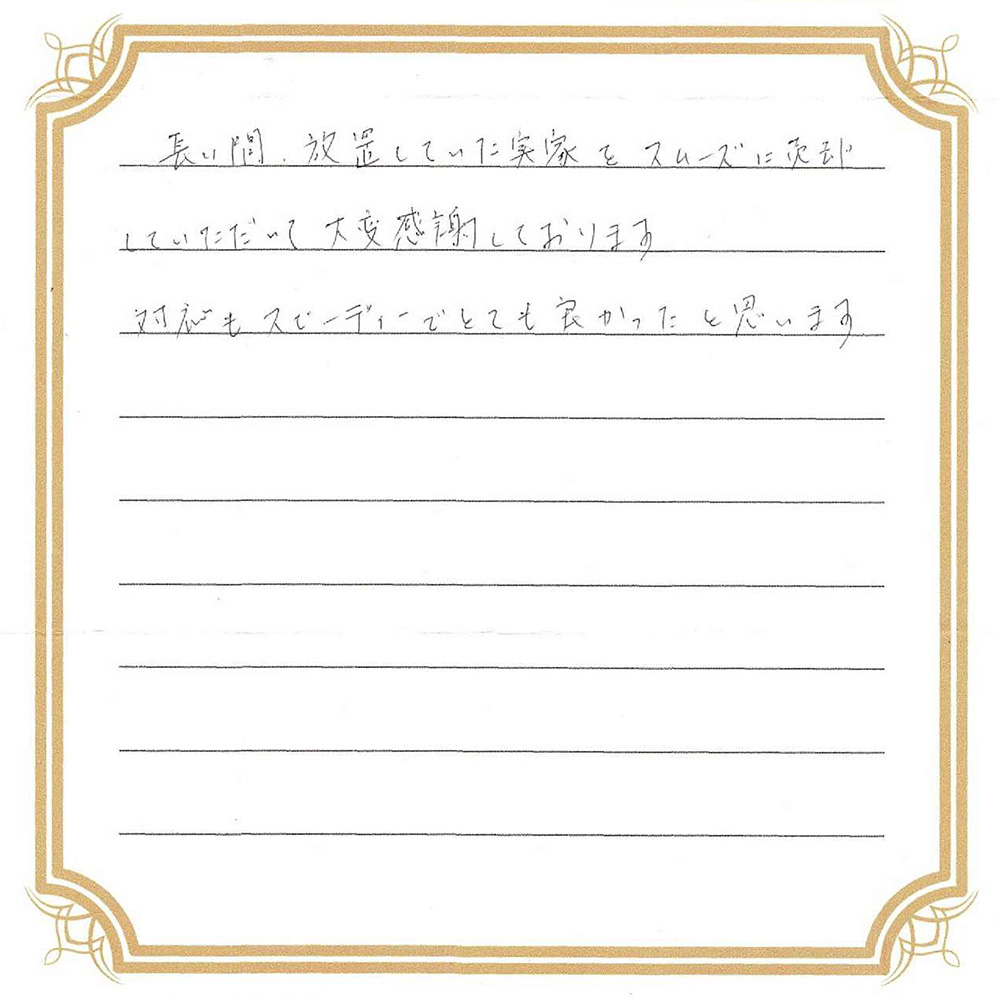 長い間、放置していた実家をスムーズに売却
していただいて大変感謝しております
対応もスピーディーでとても良かったと思います